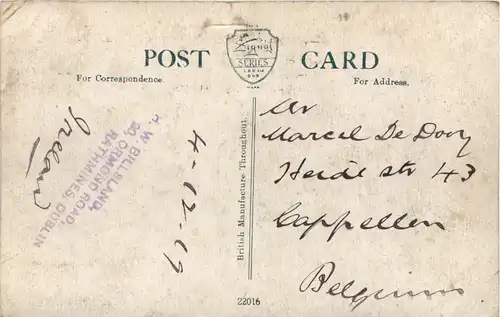 POST CARD
Signal
SERIES
For Correspondence.
For Address.
Ireland
H. W. BILLSLAND,
20, ORMOND ROAD,
RATHMINES, DUBLIN
4-12-19
British Manufacture Throughout.
Mr
Marcel De Dooy
Heide str 43
Cappellen
Belgium
22016